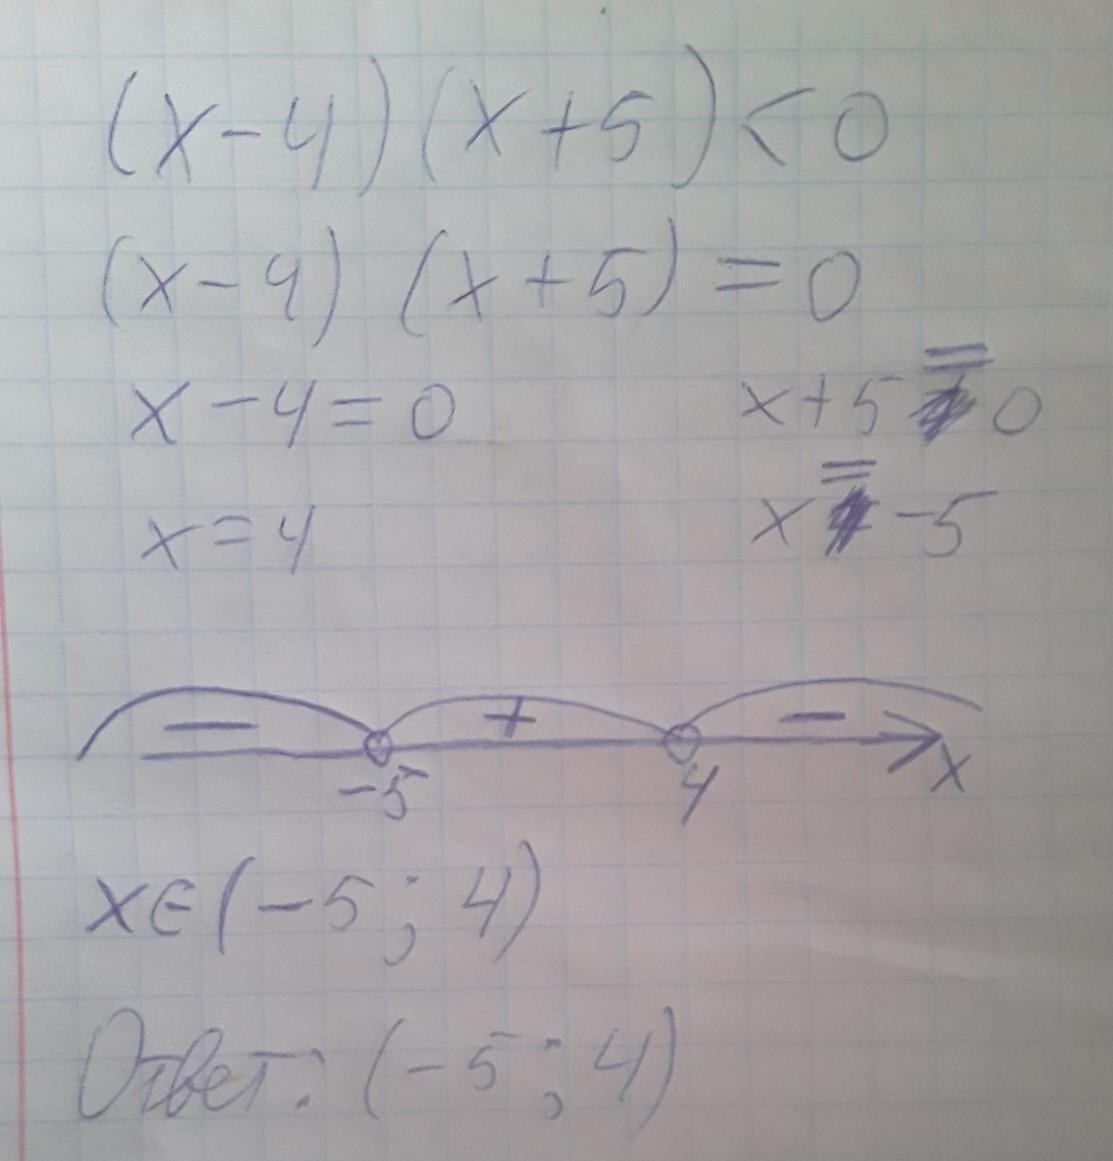 (x-4)(x+5)<0
(x-4) (x+5)=0
x-4=0 x+5=0
x=4 x=-5
- + -
-5 4 x
x∈(-5; 4)
Ответ: (-5; 4)